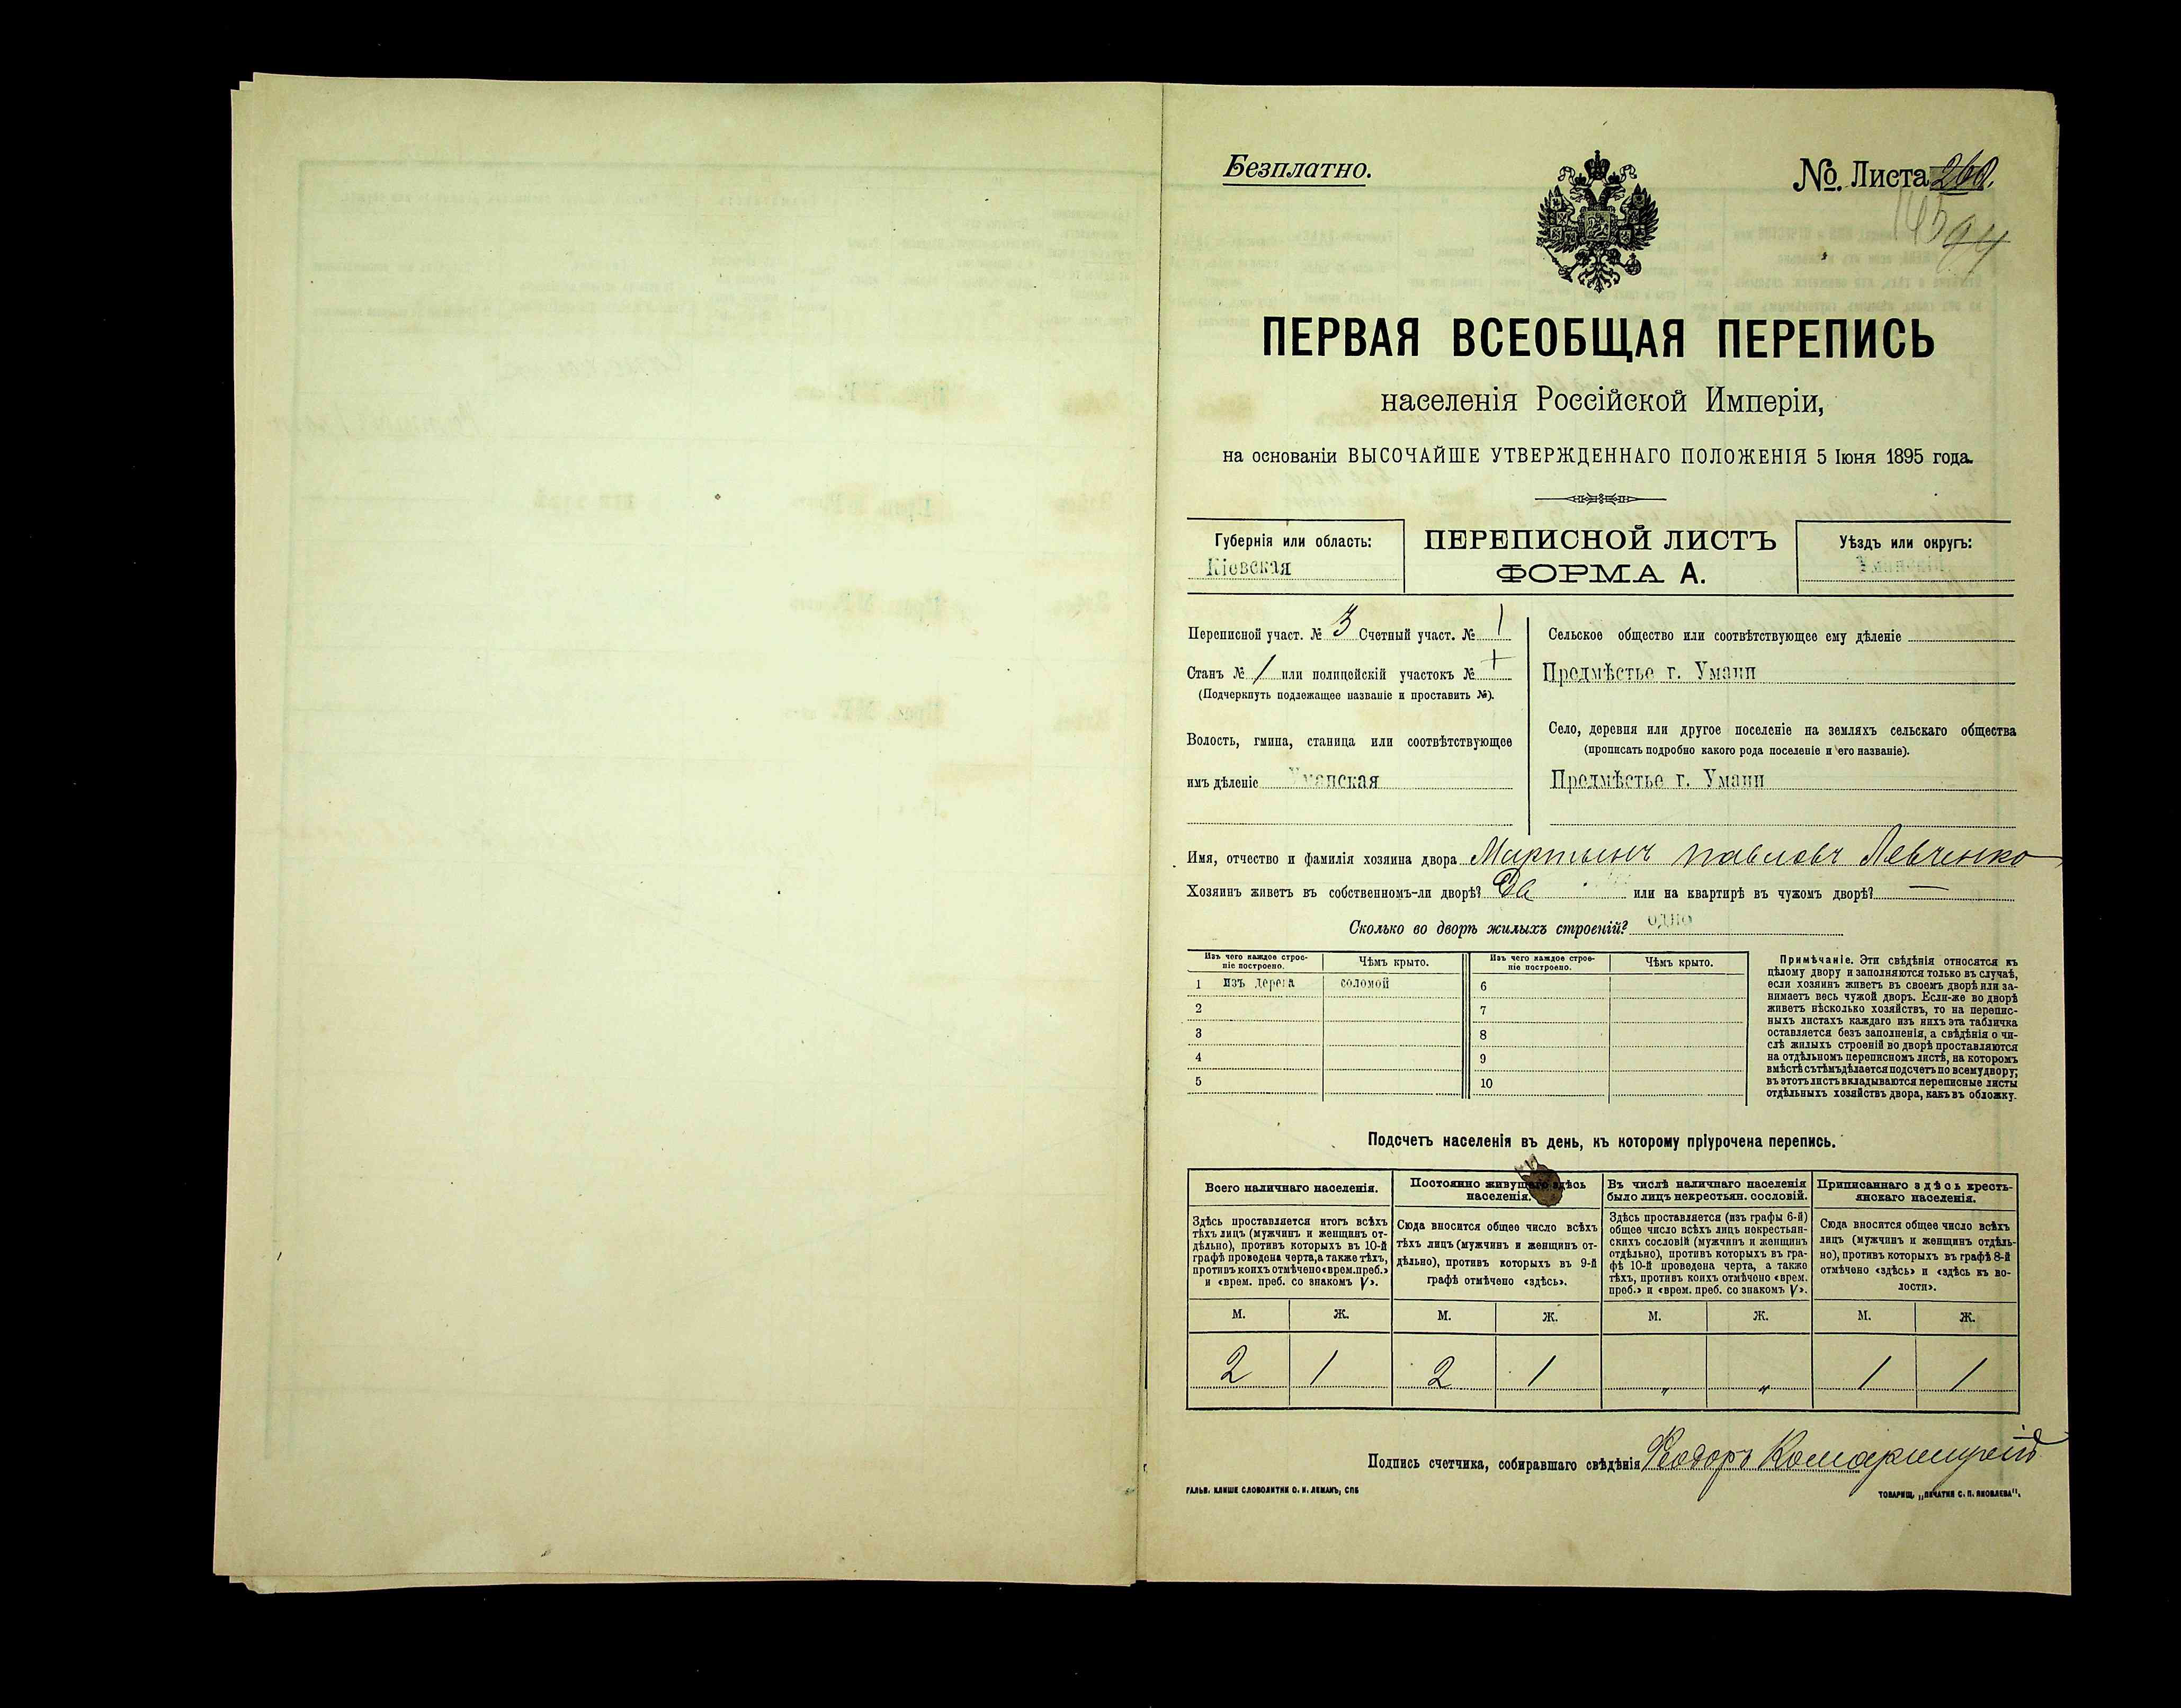 Безплатно.
№ Листа 260.
ПЕРВАЯ ВСЕОБЩАЯ ПЕРЕПИСЬ
населенія Россійской Имперіи,
на основаніи ВЫСОЧАЙШЕ УТВЕРЖДЕННАГО ПОЛОЖЕНІЯ 5 Іюня 1895 года.
Губернія или область:
Кіевская
ПЕРЕПИСНОЙ ЛИСТЪ
ФОРМА А.
Уѣздъ или округъ:
Переписной участ. № 3 Счетный участ. № 1
Станъ № 1 или полицейскій участокъ №
(Подчеркнуть подлежащее названіе и проставить №).
Волость, гмина, станица или соотвѣтствующее
имъ дѣленіе Уманская
Сельское общество или соотвѣтствующее ему дѣленіе
Предмѣстье г. Умани
Село, деревня или другое поселеніе на земляхъ сельскаго общества
(прописать подробно какого рода поселеніе и его названіе).
Предмѣстье г. Умани
Имя, отчество и фамилія хозяина двора Мартынъ Павловъ Левченко
Хозяинъ живетъ въ собственномъ-ли дворѣ? Да или на квартирѣ въ чужомъ дворѣ? —
Сколько во дворѣ жилыхъ строеній? одно
Изъ чего каждое строе-
ніе построено.
Чѣмъ крыто.
Изъ чего каждое строе-
ніе построено.
Чѣмъ крыто.
1 изъ дерева соломой 6
2 7
3 8
4 9
5 10
Примѣчаніе. Эти свѣдѣнія относятся къ
цѣлому двору и заполняются только въ случаѣ,
если хозяинъ живетъ въ своемъ дворѣ или за-
нимаетъ весь чужой дворъ. Если-же во дворѣ
живетъ нѣсколько хозяйствъ, то на перепис-
ныхъ листахъ каждаго изъ нихъ эта табличка
оставляется безъ заполненія, а свѣдѣнія о чи-
слѣ жилыхъ строеній во дворѣ проставляются
на отдѣльномъ переписномъ листѣ, на которомъ
вмѣстѣ съ тѣмъ дѣлается подсчетъ по всему двору;
въ этотъ листъ вкладываются переписные листы
отдѣльныхъ хозяйствъ двора, какъ въ обложку.
Подсчетъ населенія въ день, къ которому пріурочена перепись.
Всего наличнаго населенія.
Здѣсь проставляется итогъ всѣхъ
тѣхъ лицъ (мужчинъ и женщинъ от-
дѣльно), противъ которыхъ въ 10-й
графѣ проведена черта, а также тѣхъ,
противъ коихъ отмѣчено «врем. преб.»
и «врем. преб. со знакомъ V».
Постоянно живущаго здѣсь
населенія.
Сюда вносится общее число всѣхъ
тѣхъ лицъ (мужчинъ и женщинъ от-
дѣльно), противъ которыхъ въ 9-й
графѣ отмѣчено «здѣсь».
Въ числѣ наличнаго населенія
было лицъ некрестьян. сословій.
Здѣсь проставляется (изъ графы 6-й)
общее число всѣхъ лицъ некрестьян-
скихъ сословій (мужчинъ и женщинъ
отдѣльно), противъ которыхъ въ гра-
фѣ 10-й проведена черта, а также
тѣхъ, противъ коихъ отмѣчено «врем.
преб.» и «врем. преб. со знакомъ V».
Приписаннаго здѣсь кресть-
янскаго населенія.
Сюда вносится общее число всѣхъ
лицъ (мужчинъ и женщинъ отдѣль-
но), противъ которыхъ въ графѣ 8-й
отмѣчено «здѣсь» и «здѣсь къ во-
лости».
М. Ж. М. Ж. М. Ж. М. Ж.
2 1 2 1 „ „ 1 1
Подпись счетчика, собиравшаго свѣдѣнія Ѳеодоръ Комарницкій
ГАЛЬВ. КЛИШЕ СЛОВОЛИТНИ О. И. ЛЕМАНЪ, СПБ
ТОВАРИЩ. „ПЕЧАТНИ С. П. ЯКОВЛЕВА".